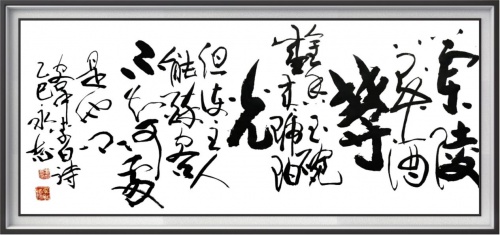 蘭陵
美酒
鬱
金香玉碗
盛来琥珀
光
但使主人
能醉客
不知何處
是他鄉
李白詩
乙巳永志